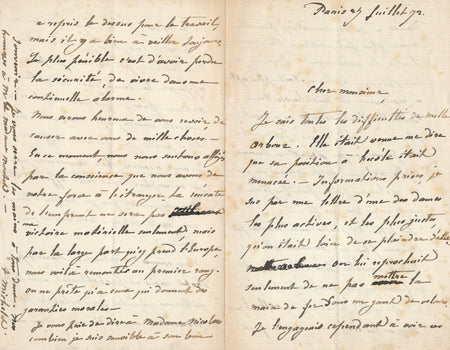 Paris 27 Juillet 72.
Cher monsieur,
Je sais toutes les difficultés de Mlle
arbour. Elle était venue me dire
que sa position à l'école était
menacée. — Informations prises je
sus par une lettre d'une des dames
les plus actives, et les plus justes,
qu'on était loin de se plaindre d'elle
on lui reprochait
seulement de ne pas mettre la
main de fer dans un gant de velours
Je l'engageais cependant à avoir un
a repris le dessus pour le travail,
mais il y a bien à veiller toujours.
Le plus pénible c'est d'avoir perdu
la sécurité, de vivre dans une
continuelle alarme.
Nous serons heureux de vous revoir, de
causer avec vous de mille choses. —
En ce moment, nous nous sentons allégés
par la conscience que nous avons de
notre force à l'étranger. La réussite
de l'emprunt ne sera pas
victoire matérielle seulement mais
par la large part qu'y prend l'Europe,
nous voilà remontés au premier rang.
on ne prête qu'à ceux qui donnent des
garanties morales —
Je vous prie de dire à Madame Nicolas
combien je suis sensible à son bon
souvenir. —
hommages à M. et Madame
J. Michelet.